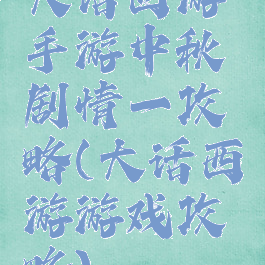 大话西游
手游中秋
剧情一攻
略(大话西
游游戏攻
略)